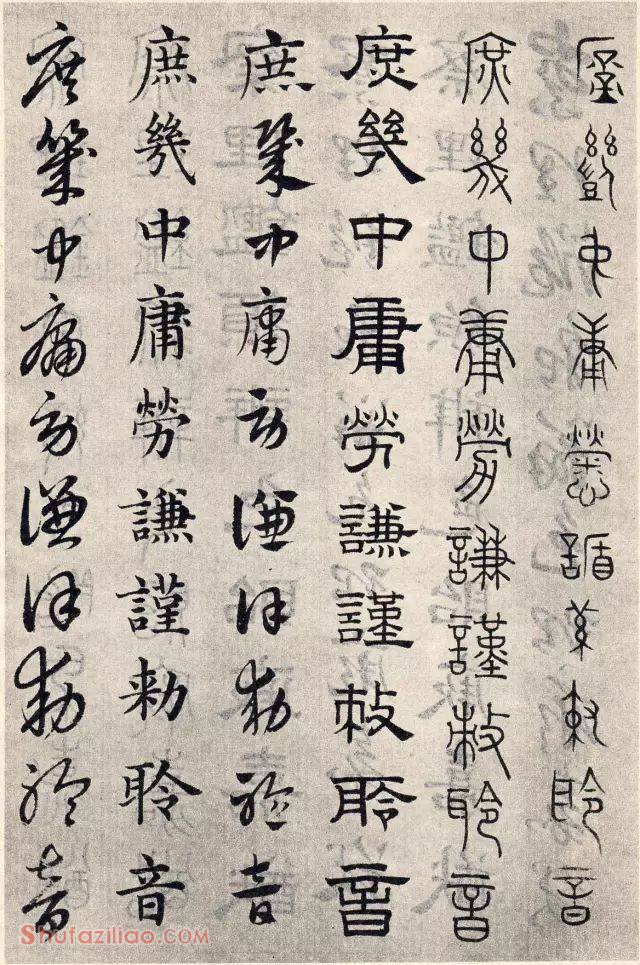 庶幾中庸勞謙謹敕聆音
庶幾中庸勞謙謹敕聆音
庶幾中庸勞謙謹敕聆音
庶幾中庸勞謙謹勑聆音
庶幾中庸勞謙謹勑聆音
庶幾中庸勞謙謹勑聆音
Shufaziliao.COM